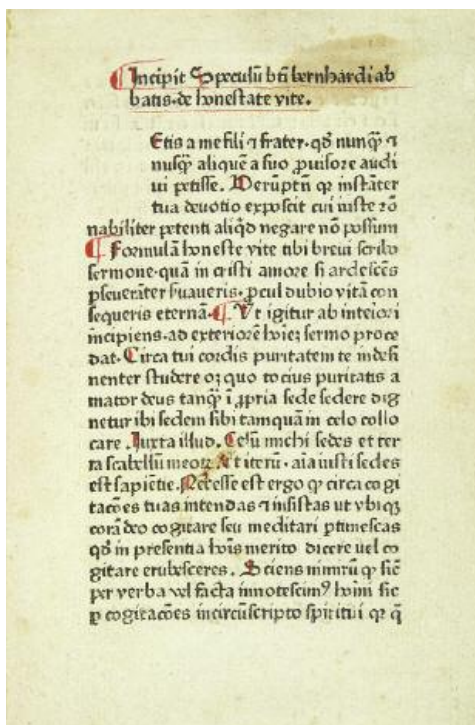 Incipit Speculũ bti bernhardi ab
batis de honestate vite.
Etis a me fili ⁊ frater. qd̃ nunq̃ꝫ ⁊
nusq̃ꝫ aliquẽ a suo ꝓuisore audi
ui petisse. Verũptñ qꝛ instãter
tua deuotio exposcit cui iuste rõ
nabiliter petenti aliqd̃ negare nõ possum
Formulã honeste vite tibi breui scribo
sermone. quã in cristi amore si ardescẽs
pseuerãter ẜuaueris. ꝓcul dubio vitã con
sequeris eternã. Vt igitur ab interiori
incipiens. ad exteriorẽ hoieꝫ sermo proce
dat. Circa tui cordis puritatem te indesi
nenter studere oꝫ quo tocius puritatis a
mator deus tanq̃ꝫ ĩ ꝓpria sede sedere dig
netur ibi sedem sibi tamquã in celo collo
care. Iuxta illud. Celũ michi sedes et ter
ra scabellũ meoꝝ Et iterũ. aĩa iusti sedes
est sapiẽtie. Necesse est ergo ꝙ circa cogi
tacões tuas intendas ⁊ insistas ut vbiqꝫ
corã deo cogitare seu meditari ptimescas
qd̃ in presentia hoĩs merito dicere uel co
gitare erubesceres. Sciens nimirũ ꝙ sic̃
per verba vel facta innotescimꝰ hoĩni sic
ꝑ cogitacões incircũscripto spiritui qꝛ q̃